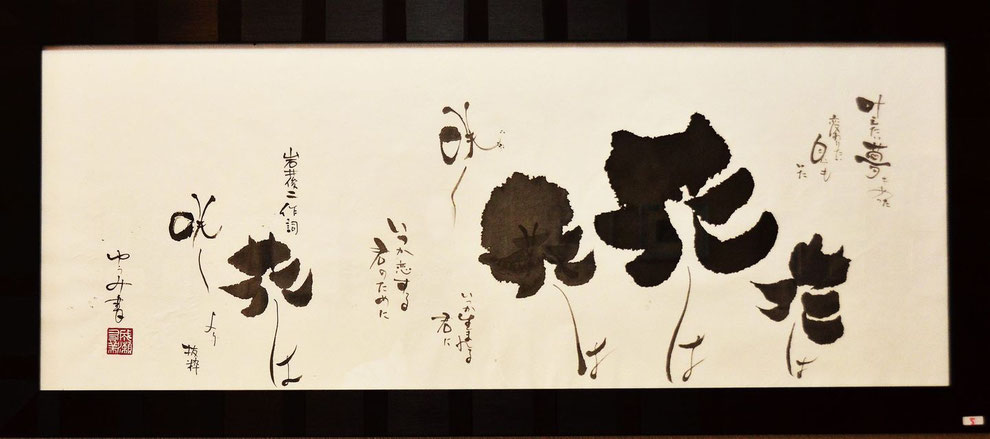 叶えたい夢もあった
変わりたい
自分も
いた
花は
花は
花は
咲く
いつか生まれる
君に
いつか恋する
君のために
岩井俊二 作詞
花は
咲く
より
抜粋
ゆうみ書